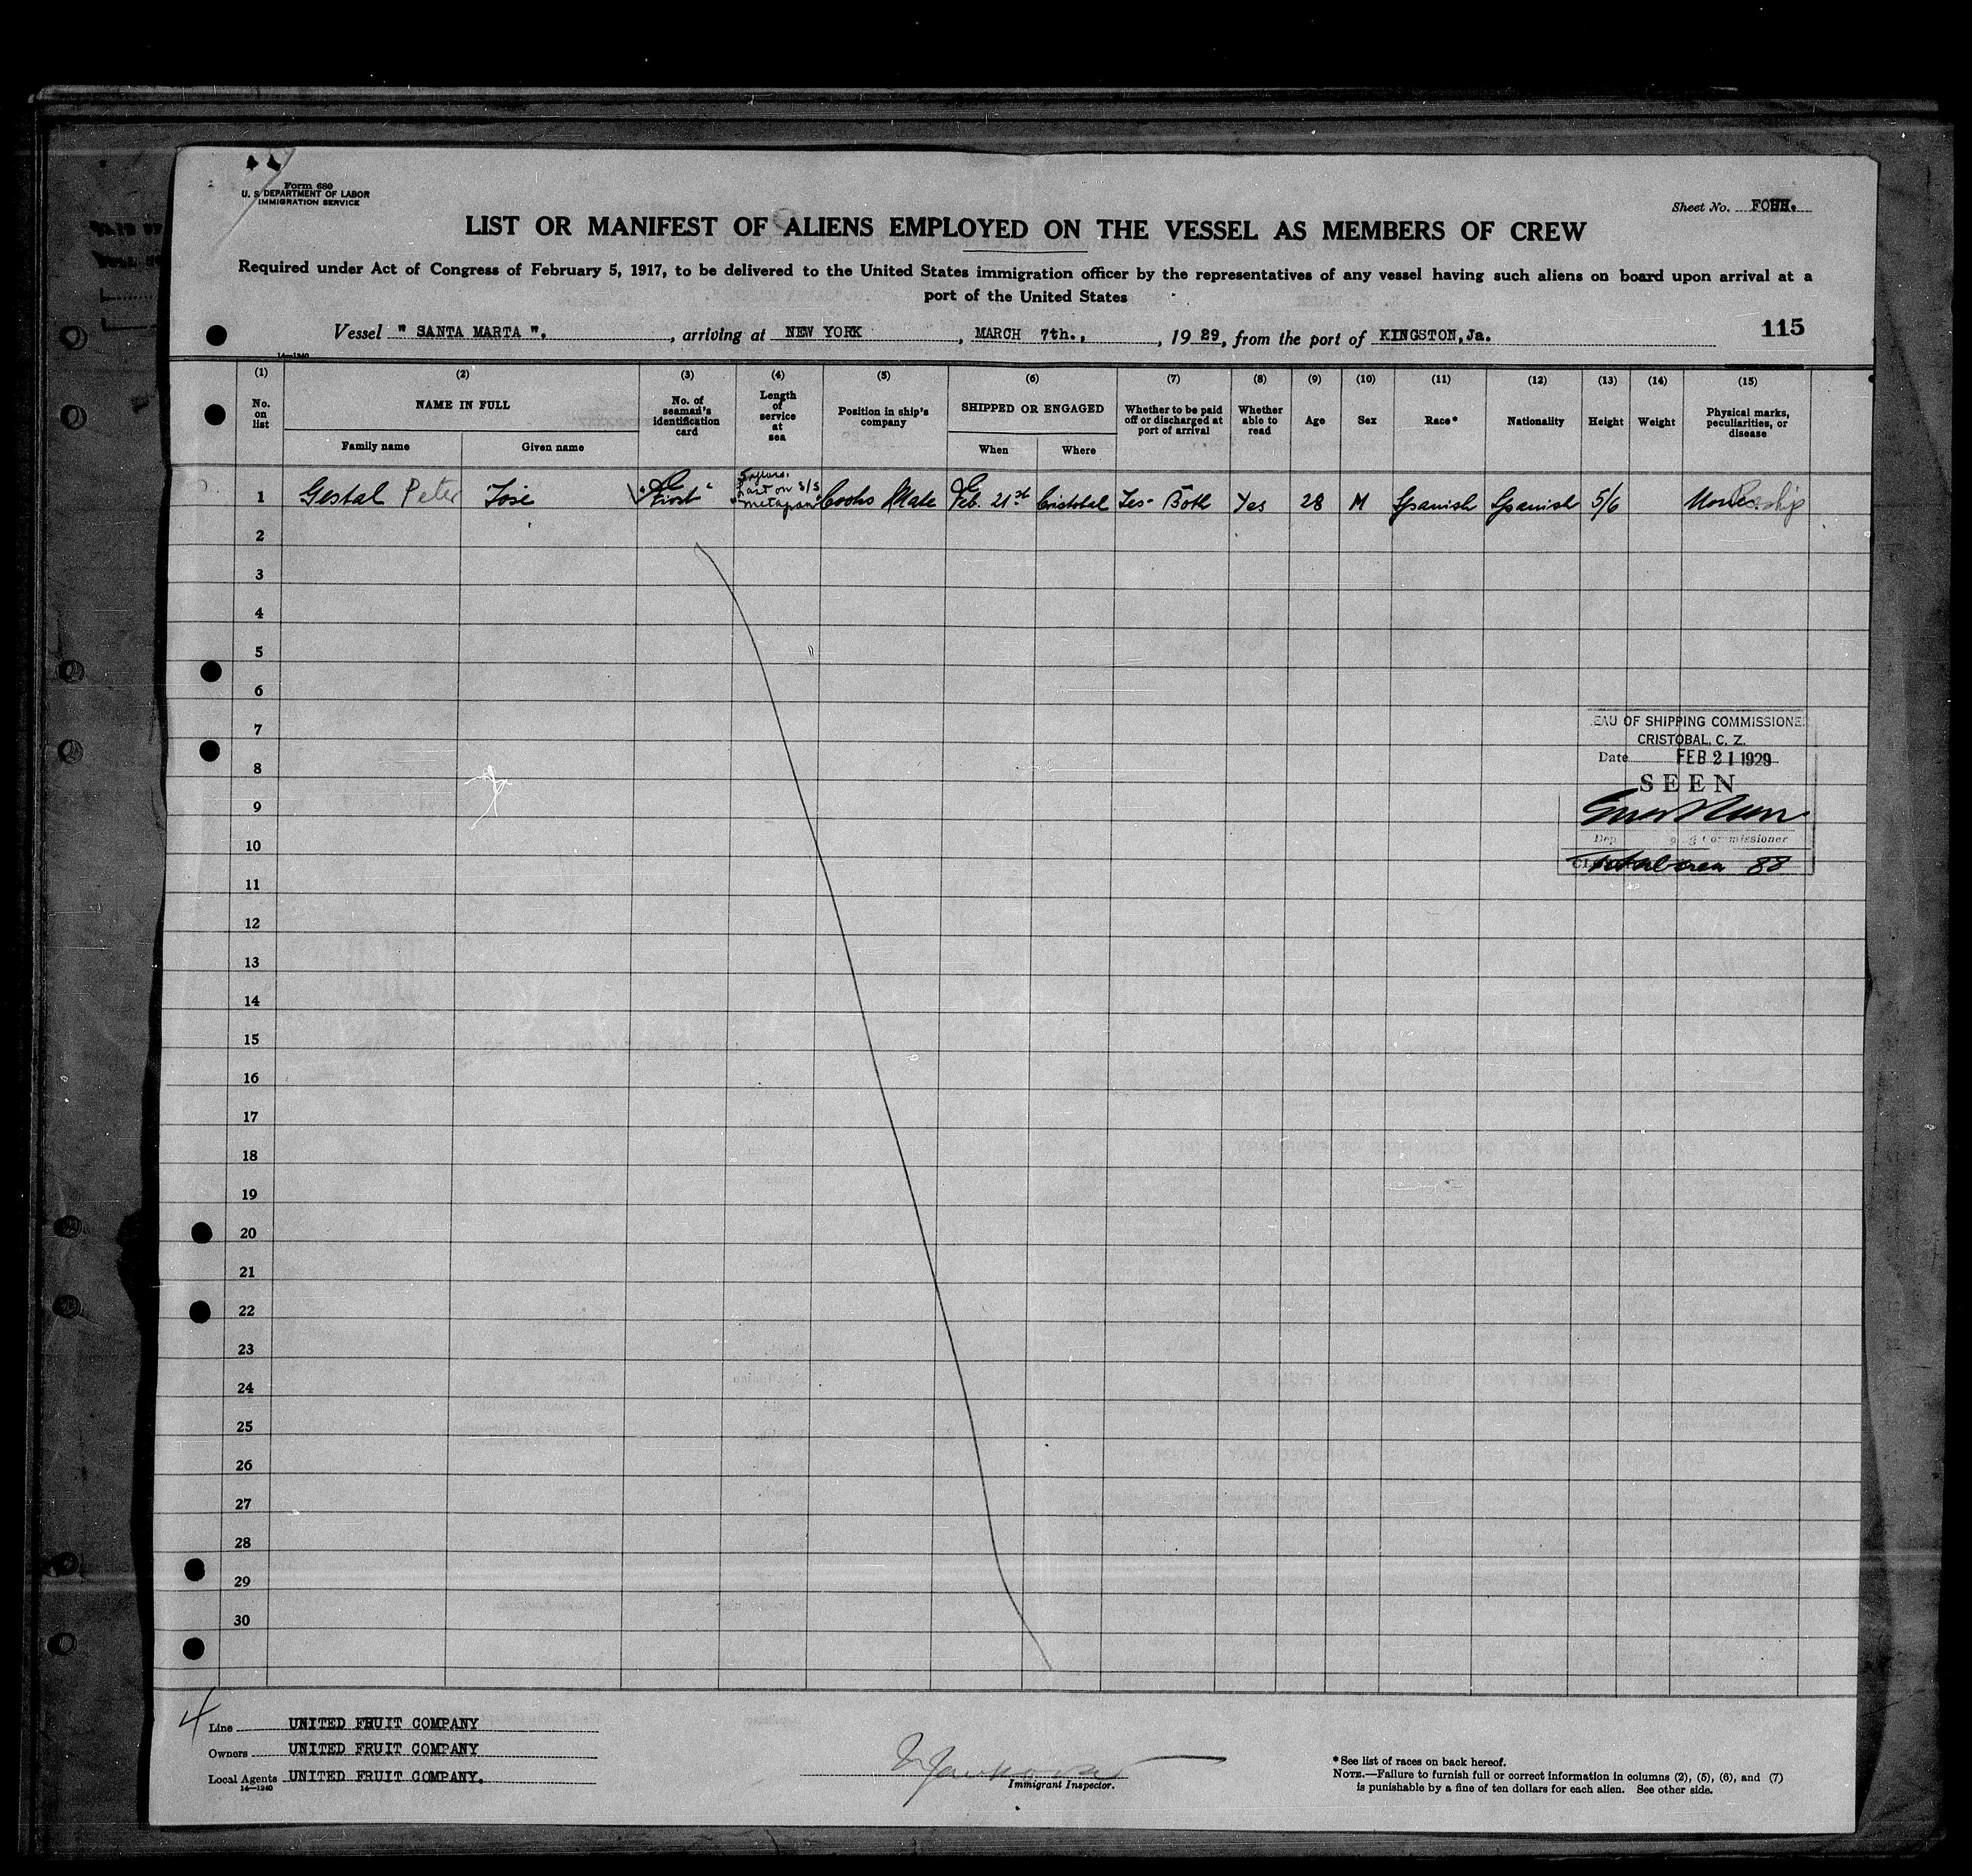 Form 680
U. S. DEPARTMENT OF LABOR
IMMIGRATION SERVICE
Sheet No. FOUR.
LIST OR MANIFEST OF ALIENS EMPLOYED ON THE VESSEL AS MEMBERS OF CREW
Required under Act of Congress of February 5, 1917, to be delivered to the United States immigration officer by the representatives of any vessel having such aliens on board upon arrival at a
port of the United States
Vessel " SANTA MARTA ". , arriving at NEW YORK , MARCH 7th., , 19 29, from the port of KINGSTON, Ja. 115
14—1240
(1) (2) (3) (4) (5) (6) (7) (8) (9) (10) (11) (12) (13) (14) (15)
No. on list
NAME IN FULL
Family name
Given name
No. of seaman's identification card
Length of service at sea
Position in ship's company
SHIPPED OR ENGAGED
When
Where
Whether to be paid off or discharged at port of arrival
Whether able to read
Age
Sex
Race*
Nationality
Height
Weight
Physical marks, peculiarities, or disease
1 Gestal Peter José "First" last on S/S "Metapan" Cooks Mate Feb. 21st Cristobal Yes- Both Yes 28 M Spanish Spanish 5/6 None
2
3
4
5
6
7
8
9
10
11
12
13
14
15
16
17
18
19
20
21
22
23
24
25
26
27
28
29
30
EAU OF SHIPPING COMMISSIONE
CRISTOBAL, C. Z.
Date FEB 21 1929
SEEN
Commissioner
Total crew 88
4
Line UNITED FRUIT COMPANY
Owners UNITED FRUIT COMPANY
Local Agents UNITED FRUIT COMPANY.
14—1240
Immigrant Inspector.
*See list of races on back hereof.
NOTE.—Failure to furnish full or correct information in columns (2), (5), (6), and (7)
is punishable by a fine of ten dollars for each alien. See other side.